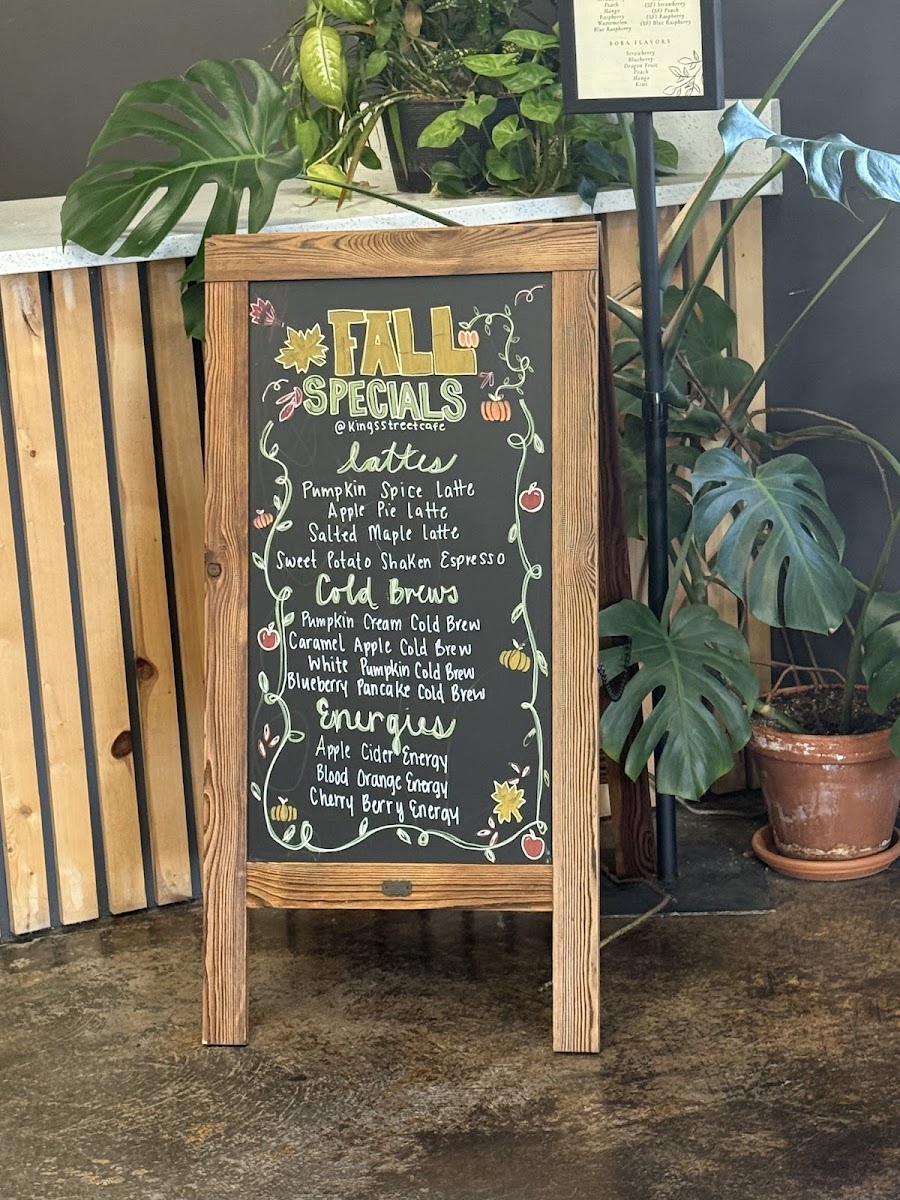 Peach
Mango
Raspberry
Watermelon
Blue Raspberry
(SF) Strawberry
(SF) Peach
(SF) Raspberry
(SF) Blue Raspberry
BOBA FLAVORS
Strawberry
Blueberry
Dragon Fruit
Peach
Mango
Kiwi
FALL
SPECIALS
@KingsStreetcafe
lattes
Pumpkin Spice Latte
Apple Pie latte
Salted Maple latte
Sweet Potato Shaken Espresso
Cold Brews
Pumpkin Cream Cold Brew
Caramel Apple Cold Brew
White Pumpkin Cold Brew
Blueberry Pancake Cold Brew
Energies
Apple Cider Energy
Blood Orange Energy
Cherry Berry Energy